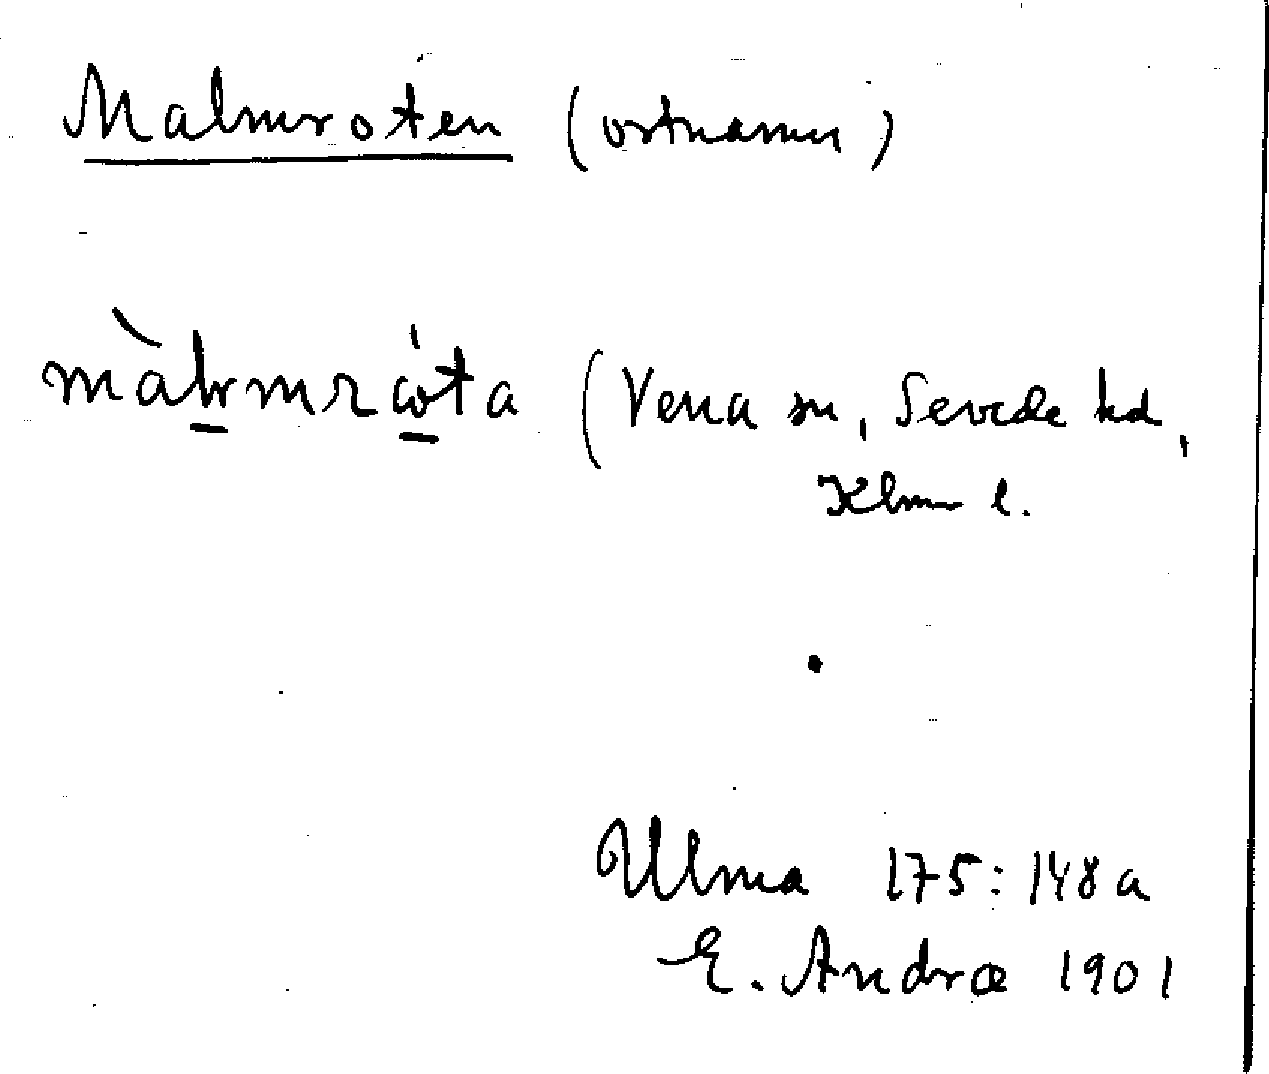 Malmroten (ortnamn)
màlmrω̇ta (Vena sn, Sevede hd,
Klm l.
Ulma 175:148a
E. Andræ 1901